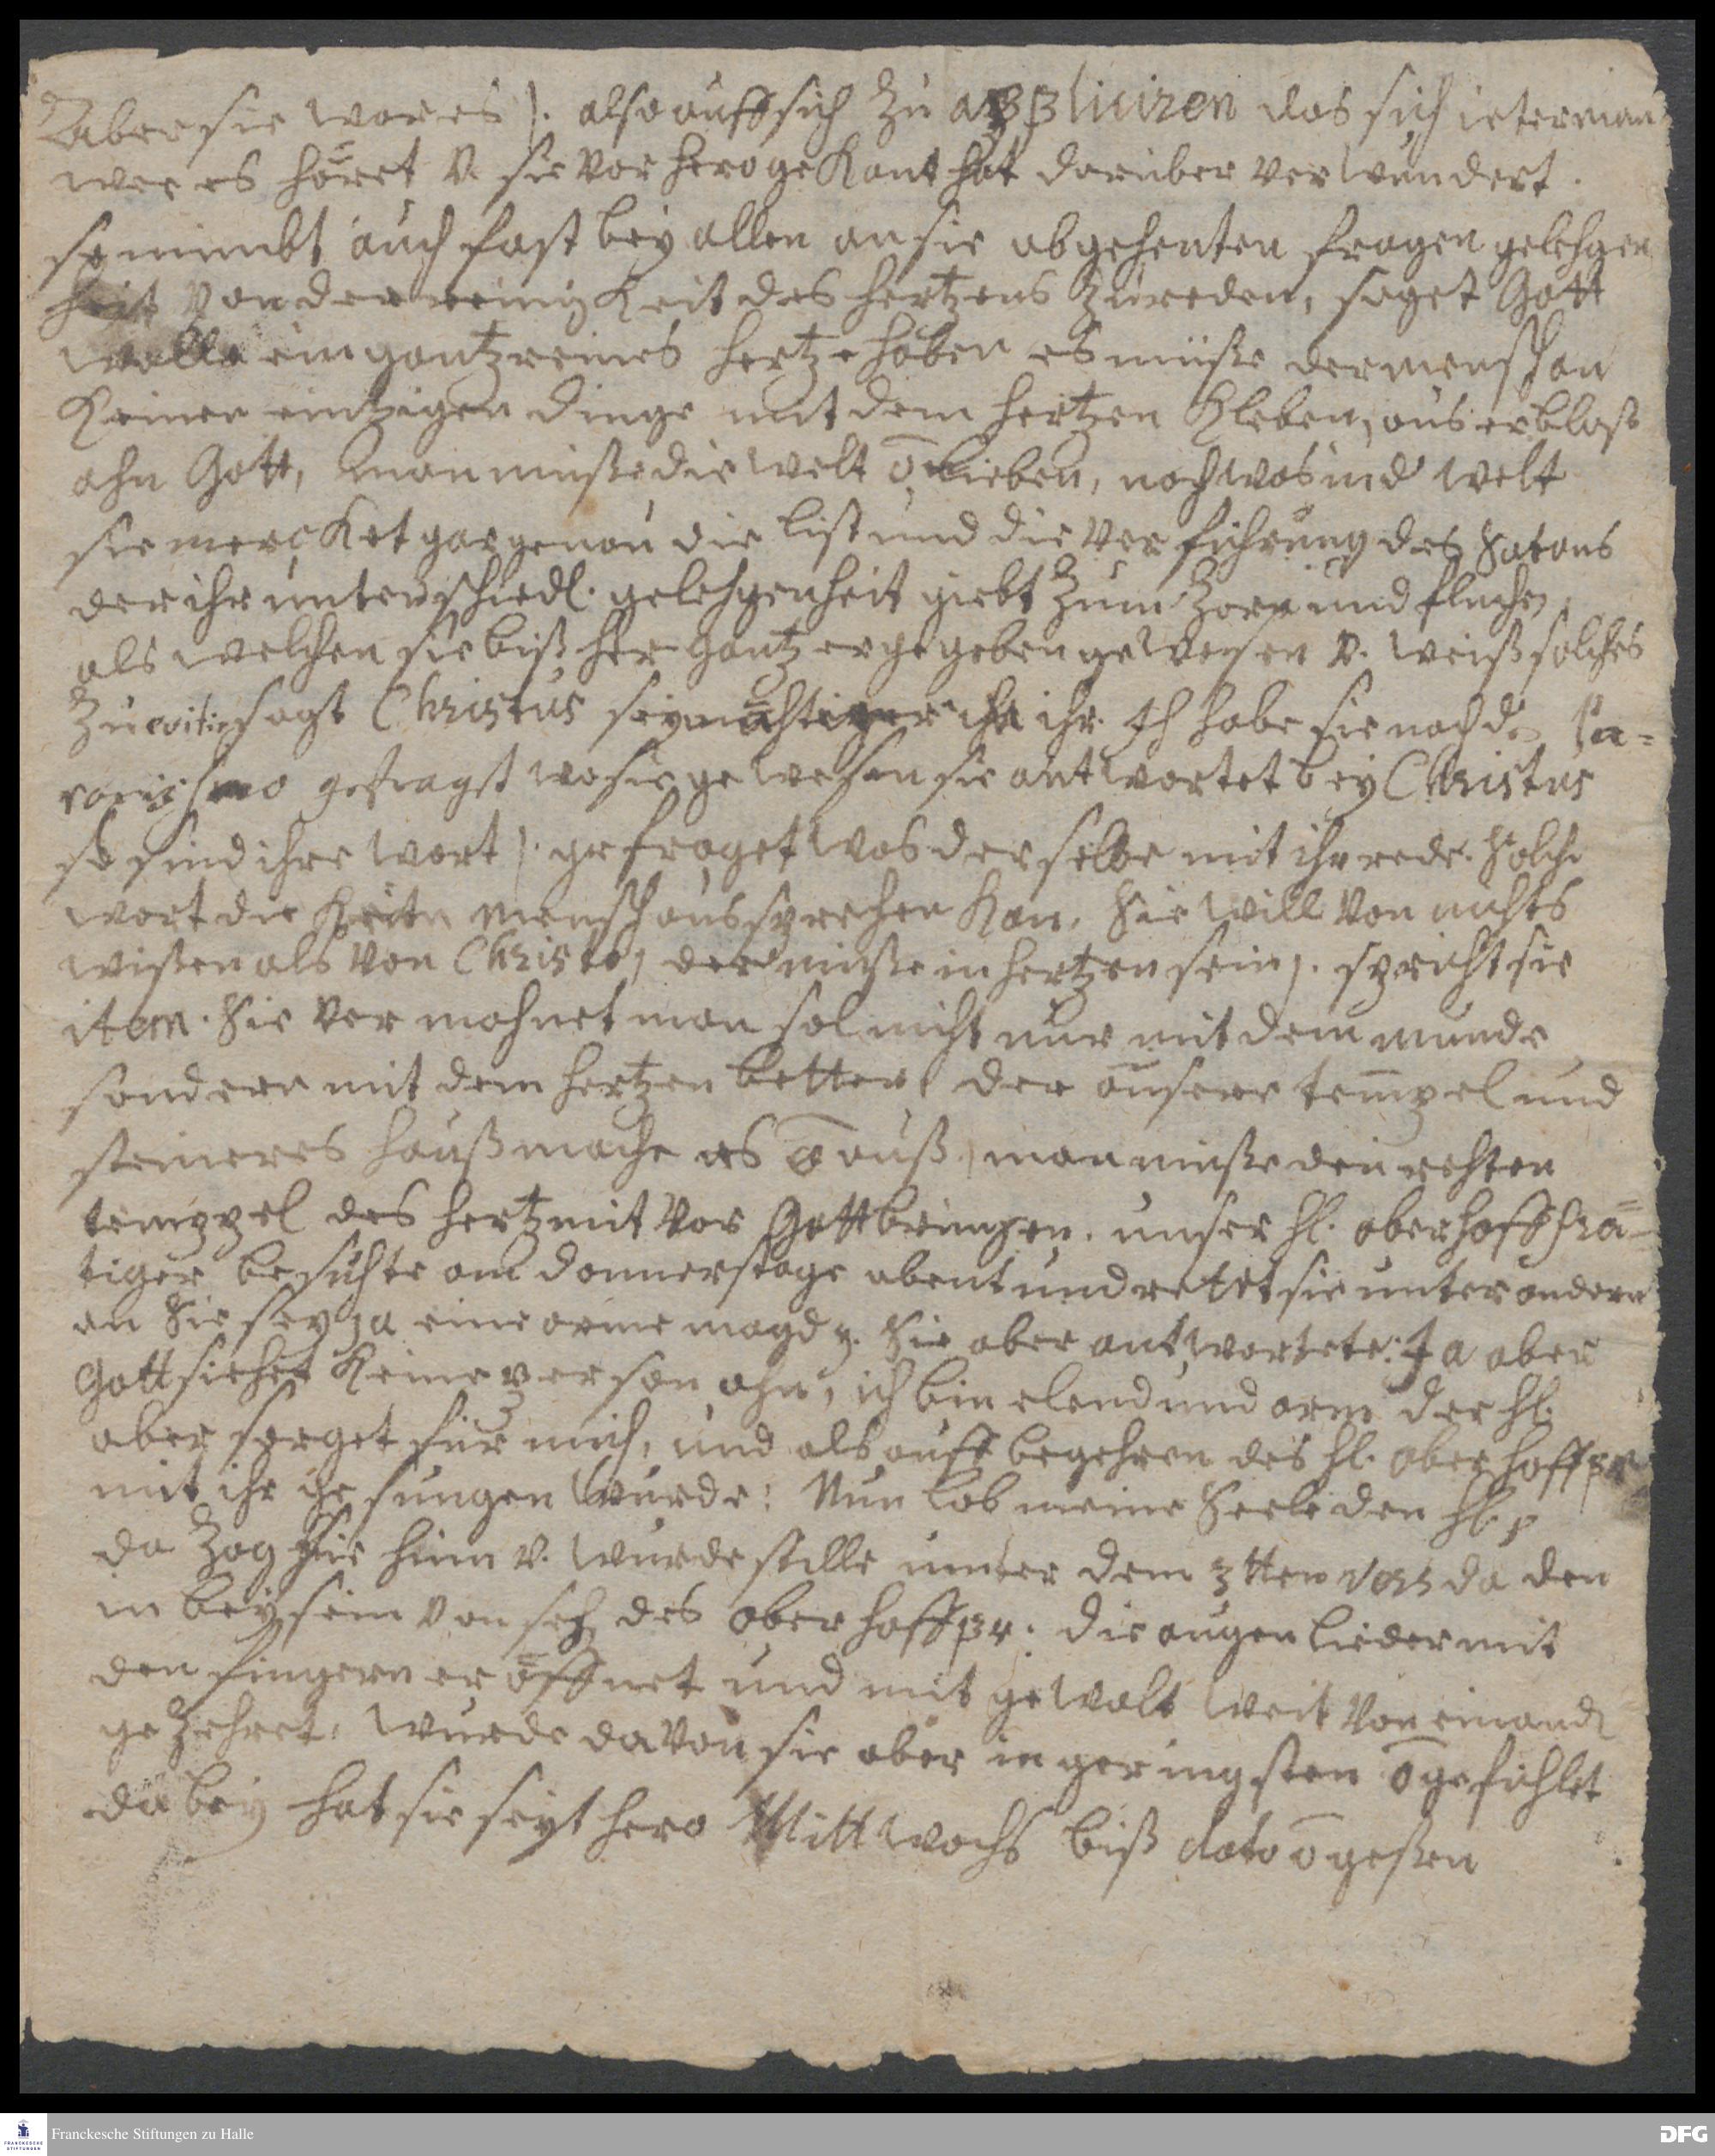 aber sie wor es). also auff sich zu appliciren das sich ieterman
wer es höret v. sie vor hero gekant hat darüber verwundert.
so nimbt auch fast bey allen an sie abgehenten fragen gelehgen
heit von der reinigkeit des hertzens zu reden, saget Gott
wolle ein gantz reines hertze haben es müsse der mensch an
keinen eintzigen dinge mit dem hertzen kleben, aus er bloss
ahn Gott, man müsse die welt ō lieben, noch was in d welt
sie mercket gar genau die list und die verführung des Satans
der ihr unterschiedl. gelehgenheit giebt zum zorn und fluchen,
als welchen sie biß her gantz ergegeben gewesen v. weiß solches
zu sagt Christus sey mächtiger ihr. Ich habe sie nach d. pa-
roxismo gefragt wo sie gewesen sie antwortet bey Christus
so sind ihre wort). gefraget was derselbe mit ihr rede. Solche
wort die kein mensch aussprechen kan. Sie will von nichts
wißen als von Christo, der müsse in hertzen sein). spricht sie
item. Sie vermahnet man sol nicht nur mit dem munde
sondern mit dem hertzen betten der äusere tempel und
steineres hauß mache es ō auß, man müsse den rechten
temppel des hertz mit vor Gott bringen. unser hl. oberhoffprä-
tiger besuchte am donnerstage abent und retet sie unter andern
an Sie sey ja eine arme magd p. Sie aber antwortete: Ja aber
Gott siehet keine person ahn, ich bin elend und arm der hl.
aber sorget für mich, und als auff begehren des hl. oberhoffpr
mit ihr gesungen wurde: Nun lob meine Seele den hl. p
da zog sie hinn v. wurde stille unter dem 3tten vers da den
in beysein von des oberhoffpr. die augenlieder mit
den fingern eröffnet und mit gewalt weit von einand
gezehret, wurde davon sie aber in geringsten ō gefühlet
dabey hat sie seyt hero Mittwochs biß dato ō geßen
Franckesche Stiftungen zu Halle
FRANCKESCHE STIFTUNGEN
DFG